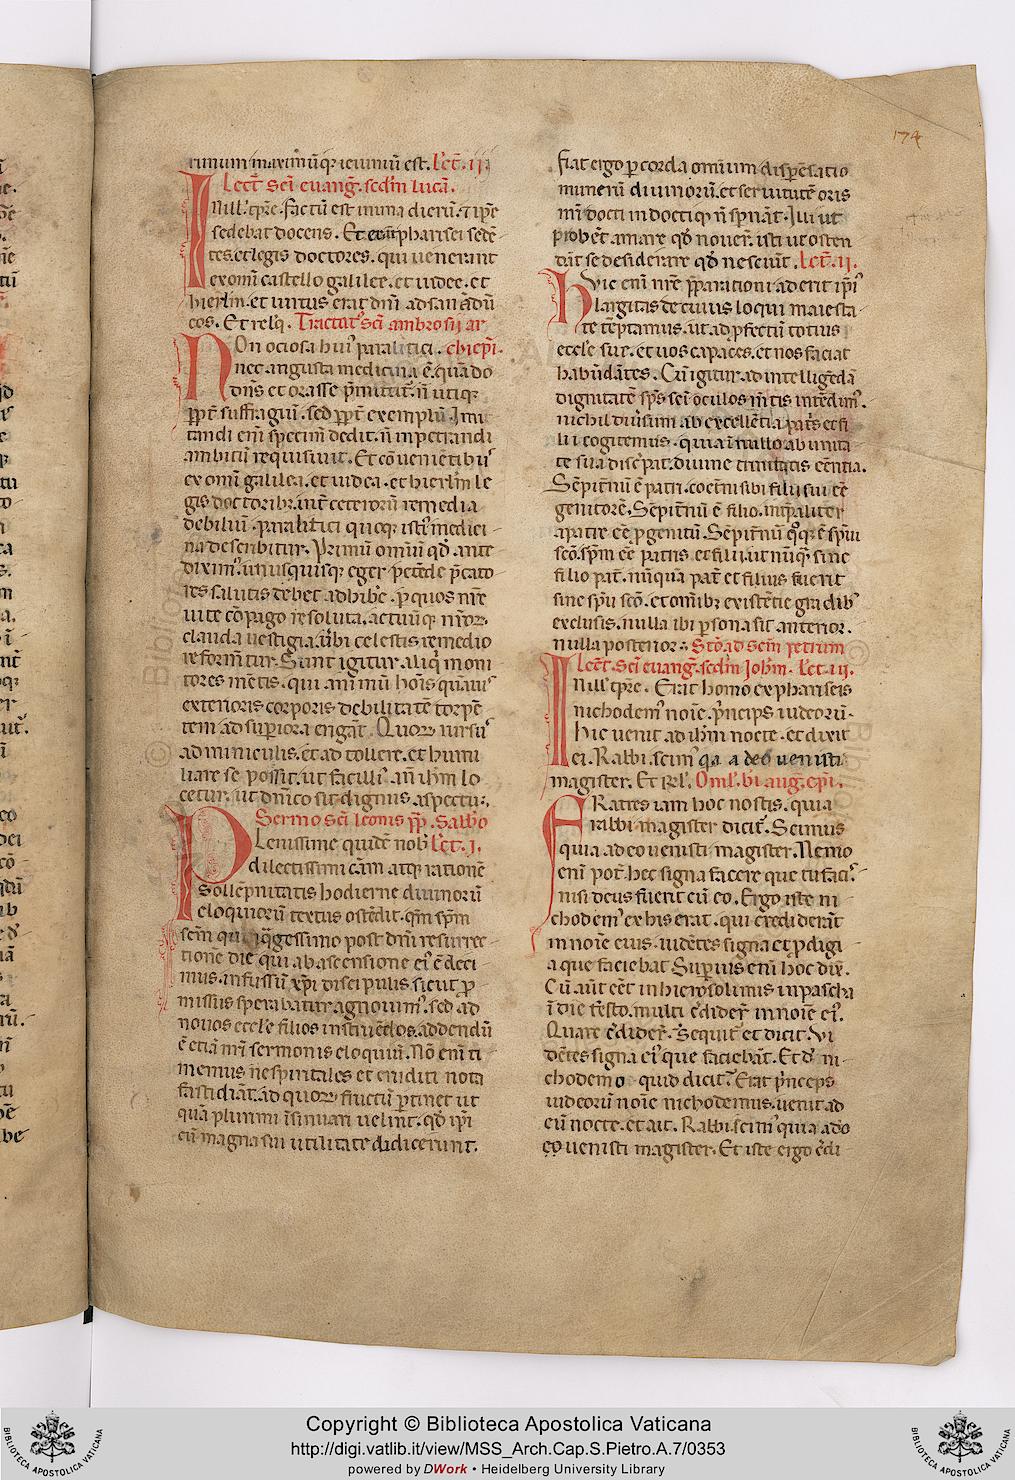 174
rimum maximūq; ieiuniū est. Lc̄t. iii.
Lect̄ sc̄i euang̅. sed̄m lucā.
In ill' tp̄re. factū est in una dierū. ⁊ ip̄e
sedebat docens. Et erant pharisei sedē
tes. et legis doctores. qui uenerant
ex omī castello galilee. et iudee. et
hierl̄m. et uirtus erat dn̄i ad sanādū
eos. Et relq̄. Tractat' sc̄i ambrosii ar
chiep̄i.
Non ociosa hui' paralitici.
nec angusta medicina ē. quādo
dn̄s et orasse p̄mittit̄. n̄ utiq;
pp̄t̄ suffragiū. sed pp̄t̄ exemplū. Imi
tandi eni specim̄ dedit. n̄ inpetrandi
ambitū requisiuit. Et cōuenietib'
ex omī galilea. et iudea. et hierl̄m le
gis doctorib;. int̄ ceterorū remedia
debiliū. paralitici quoq; isti' medici
na describitur. Primū omiū qd̄ ante
dixim'. unusquisq; eger pētēde p̄cato
res salutis debet adhibe. p̄ quos nr̄e
uite cōpago resoluta. actuūq; nr̄or
clauda uestigia. ūbi celestis remedio
reformētur. Sunt igitur aliq̄ moni
tores mētis. qui animū hoīs quāuis
exterioris corporis debilitatē torpē
tem ad supiora erigāt. Quor rursus
adminiculis. et ad tollere. et humi
liare se possit. ut facilli' an̄ ihm lo
cetur. ut dn̄ico sit dignus aspectu.
Sermo sc̄i leonis pp̄. Sabb̄o
Plenissime quidē nob' Lēt. i.
dilectissimi cām atq; rationē
sollēpnitatis hodierne diuinorū
eloquiorū textus ostēdit. qm̄ sp̄m
sc̄m quinq̄gessimo post dn̄i resurrec
tionē die qui ab ascensione ei' ē deci
mus. infusū xp̄i discipulis sicut p̄
missus sperabatur agnouim'. sed ad
nouos eccl'e filios instruēdos. addendū
ē etiā nr̄i sermonis eloquiū. Nō eni ti
memus. ne spiritales et eruditi nota
fastidiāt. ad quor fructū p̄tinet ut
quā plurimi insinuari uelint. qd̄ ip̄i
cū magna sui utilitate didicerunt.
fiat ergo p̄ corda omium dispēsatio
munerū diuinorū. et seruitutē oris
nr̄i docti indoctiq; n̄ sp̄nāt. Illi ut
probet amare qd̄ nouer̄. isti ut osten
dāt se desiderare qd̄ nesciūt. Lēt. ii.
Hvic eni nr̄e p̄parationi aderit ip̄i'
largitas de cuius loqui maiesta
te tēptamus. ut ad p̄fectū totius
eccl'e sue. et uos capaces. et nos faciat
habūdātes. Cū igitur ad intelligēdā
dignitatē sp̄s sc̄i oculos mētis intēdim'.
nichil diu'sum ab excellētia patris et fi
lii cogitemus. quia in nullo ab unita
te sua discrepat. diuine trinitatis eēntia.
Sēpit̄nū ē patri. coet̄ni sibi filii sui eē
genitorē. Sēpit̄nū ē filio. inpaliter
a patre eē p̄genitū. Sēpit̄nū q̄oq; ē sp̄ui
sc̄o. sp̄m eē patris et filii. ut nūq̄ sine
filio pat̄. nūquā pat̄ et filius fuerit
sine sp̄u sc̄o. et omib; existētie gradib'
exclusis. nulla ibi p̄sona sit anterior.
nulla posterior. Stō ad sc̄m petrum
Lēct̄ sc̄i euang̅. sed̄m Joh̄m. Lēt. iii.
In ill' tp̄re. Erat homo ex phariseis
nichodem' noīe. p̄nceps iudeorū.
hic uenit ad ihm nocte. et dixit
ei. Rabbi. scim' q̄a a deo uenisti
magister. Et rl̄. Oml'. bi aug̅. ep̄i.
FRatres iam hoc nostis. quia
rabbi magister dicit̄. Scimus
quia a deo uenisti magister. Nemo
eni pot̄. hec signa facere que tu facis.
nisi deus fuerit cū eo. Ergo iste ni
chodem' ex his erat. qui crediderāt
in noīe eius. uidētes signa et p̄digi
a que faciebat Superius eni hoc dix̄.
Cū aūt eēt in hierosolimis in pascha
i die festo. multi c̄dider̄ in noīe ei'.
Quare c̄dider̄. Sequit̄ et dicit. Vi
dētes signa ei' que faciebāt. Et d̄ ni
chodemo quid dicit? Erat p̄nceps
iudeorū noīe nichodemus. uenit ad
eū nocte. et ait. Rabbi. scim' quia a do
eo uenisti magister. Et iste ergo c̄di
Copyright © Biblioteca Apostolica Vaticana
http://digi.vatlib.it/view/MSS_Arch.Cap.S.Pietro.A.7/0353
powered by DWork • Heidelberg University Library
BIBLIOTECA APOSTOLICA VATICANA
BIBLIOTECA APOSTOLICA VATICANA